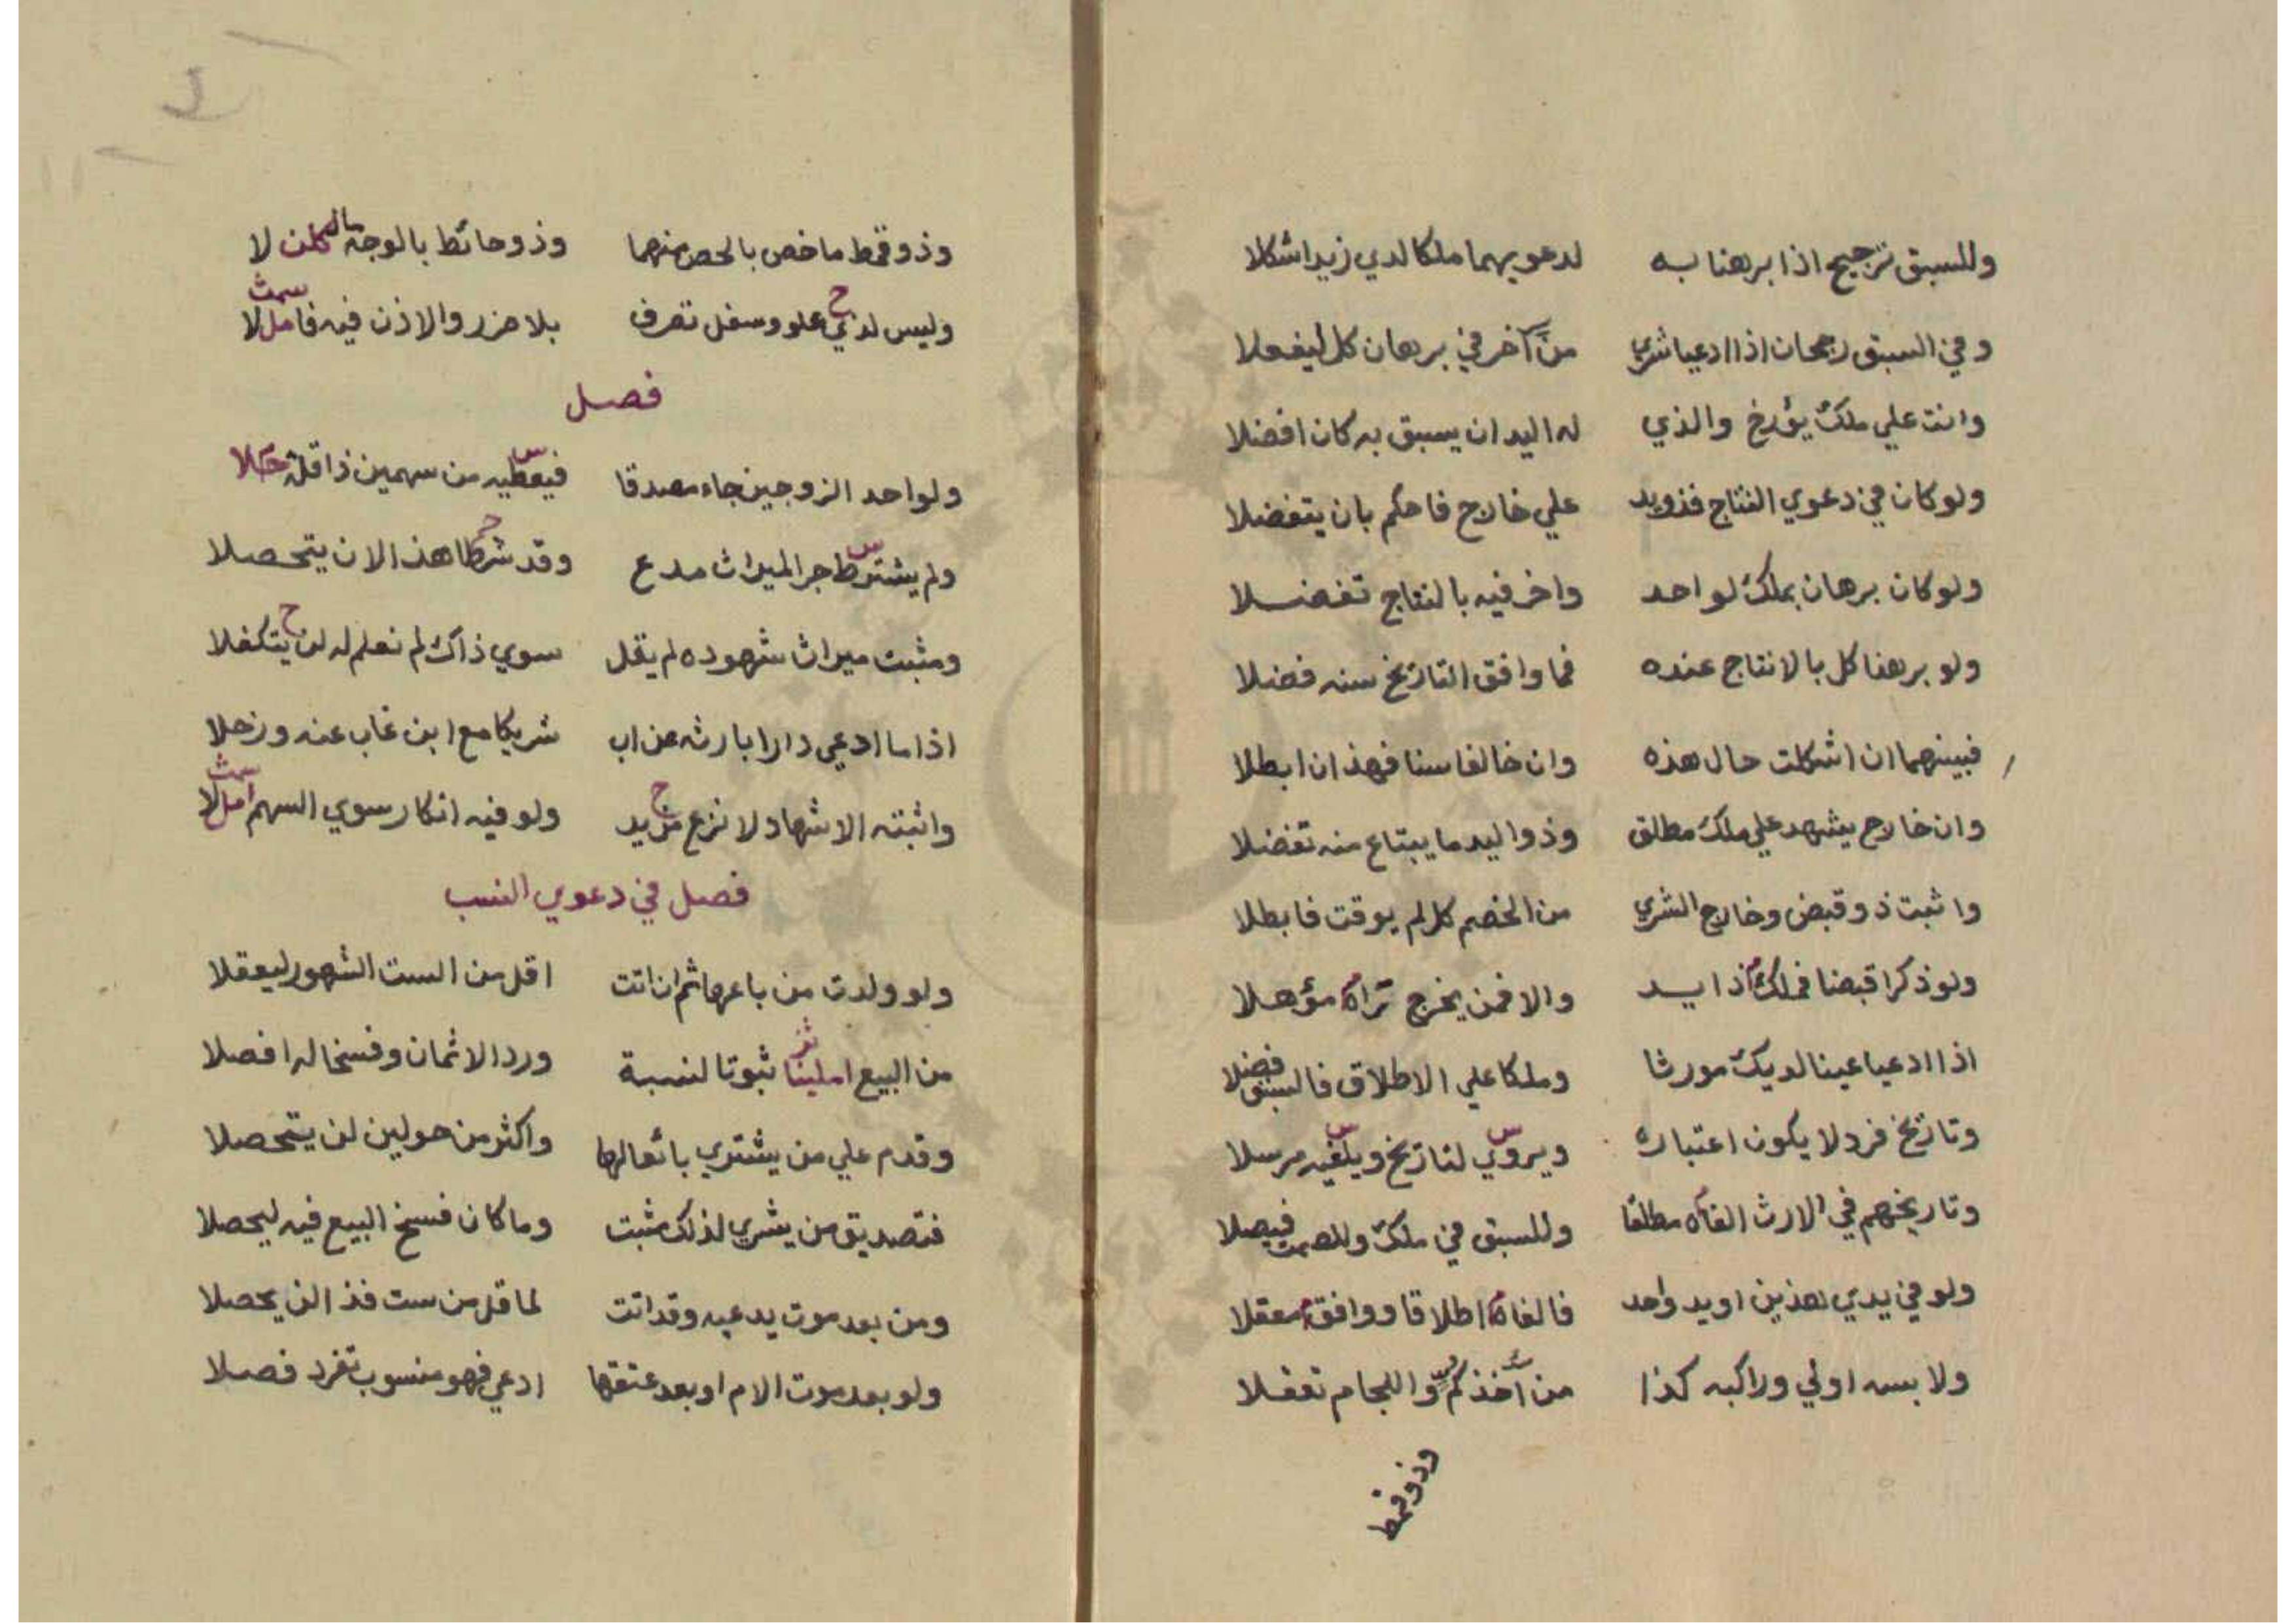 وللسبق ترجيح اذا برهنا به لدعويهما ملكا لدي زيد اشكلا
وفي السبق رجحان اذا ادعيا شري من آخر في برهان كل ليفعلا
وانت علي ملك يؤرخ والذي له اليد ان يسبق به كان افضلا
ولو كان في دعوي النتاج فذويد علي خارج فاحكم بان يتفضلا
ولو كان برهان بملك لواحد واخر فيه بالنتاج تفضلا
ولو برهنا كل بالانتاج عنده فما وافق التاريخ سنه فضلا
فبينهما ان اشكلت حال هذه وان خالفا سنا فهذان ابطلا
وان خارج يشهد علي ملك مطلق وذو اليد ما يبتاع منه تفضلا
واثبت ذو قبض وخارج الشري من الخصم كل لم يوقت فابطلا
ولو ذكرا قبضا فملك ذا يد والا فمن يخرج تراه مؤهلا
اذا ادعيا عينا لديك مورثا وملكا علي الاطلاق فالسبق فضلا
وتاريخ فرد لا يكون اعتباره ويروي س لتاريخ ويلغيه س مرسلا
وتاريخهم في الارث الغاه مطلقا وللسبق في ملك وللصمت فيصلا
ولو في يدي هذين او يد واحد فالغاه اطلاقا ووافق معقلا
ولابسه اولي وراكبه كذا من آخذ كم واللجام تعقلا
وذو قمط
وذو قمط ما خص بالخص منهما وذو حائط بالوجه مالا لكن لا
وليس لذي ح علو وسفل تصرف بلا ضرر والاذن فيه فاملا سمث
فصل
ولو احد الزوجين جاء مصدقا فيعطيه س من سهمين ذا قلة حملا
ولم يشترط س جر الميراث مدع وقد شرطا ح هذا لان يتحصلا
ومثبت ميراث شهوده لم يقل سوي ذاك لم نعلم له لن ح يتكفلا
اذا ما ادعي دارا بارثه عن اب شريكا مع ابن غاب عنه وزحلا
واثبته الاشهاد لا نزع ح من يد ولو فيه انكار سوي السهم املا سمث
فصل في دعوي النسب
ولو ولدت من باعها ثم ان اتت اقل من الست الشهور ليعقلا
من البيع املينا ثبوتا لنسبة ورد الاثمان وفسخا له افصلا
وقدم علي من يشتري بائعا لها واكثر من حولين لن يتحصلا
فتصديق من يشري لذلك مثبت وما كان فسخ البيع فيه ليحصلا
ومن بعد موت يدعيه وقد اتت لما قل من ست فذا لن يحصلا
ولو بعد موت الام او بعد عتقها ادعي فهو منسوب تفرد فصلا